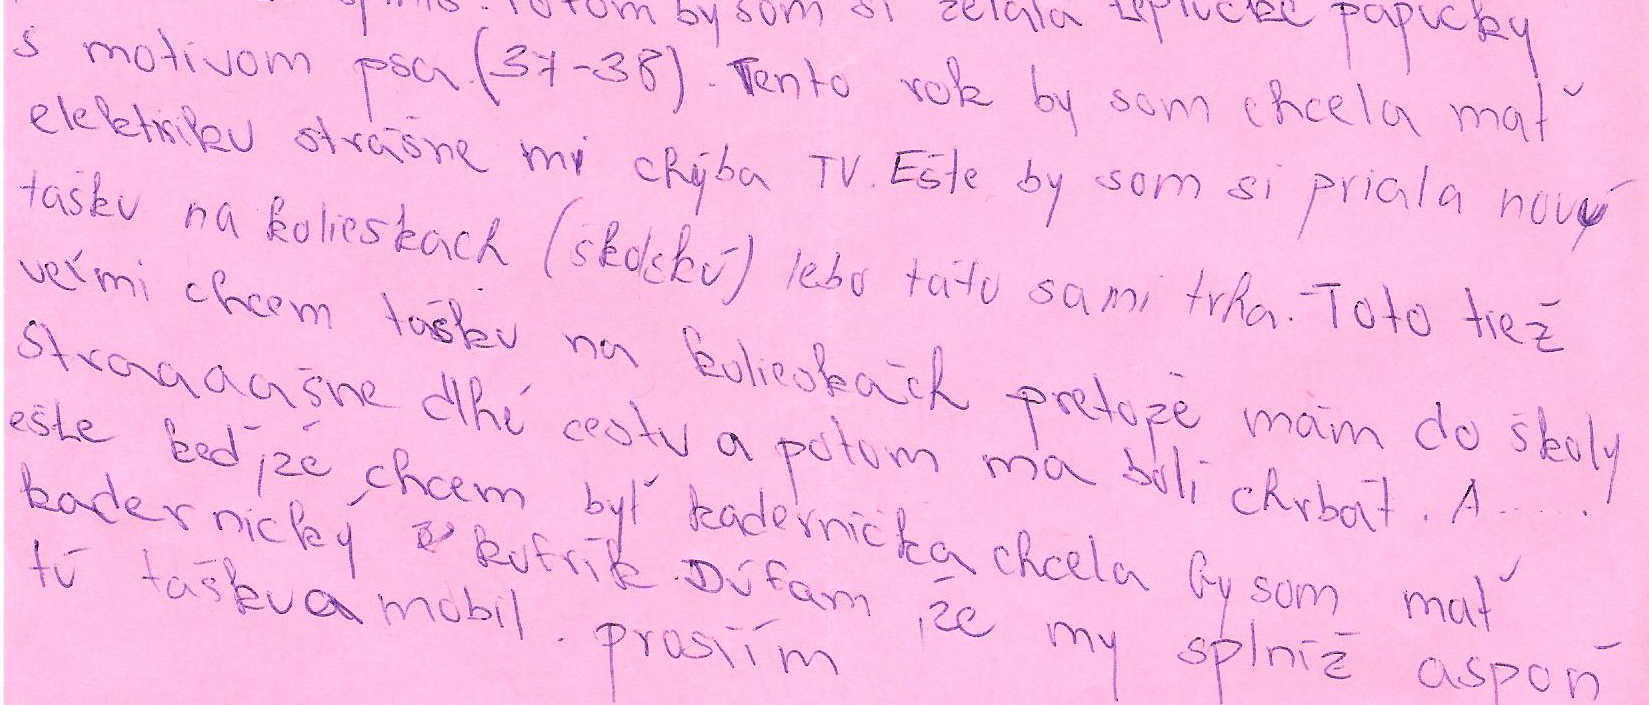 splníš. Potom by som si želala teplučké papučky
s motívom psa. (37-38). Tento rok by som chcela mať
elektriku strášne mi chýba TV. Ešte by som si priala novú
tašku na kolieskach (školskú) lebo táto sa mi trhá. Toto tiež
veľmi chcem tašku na kolieskách pretože mám do školy
Straaaašne dlhé cestu a potom ma bolí chrbát. A......
ešte keďže chcem byť kaderníčka chcela by som mať
kadernícký kufrík. Dúfam, že my splníž aspoň
tú tašku a mobil. prosíím